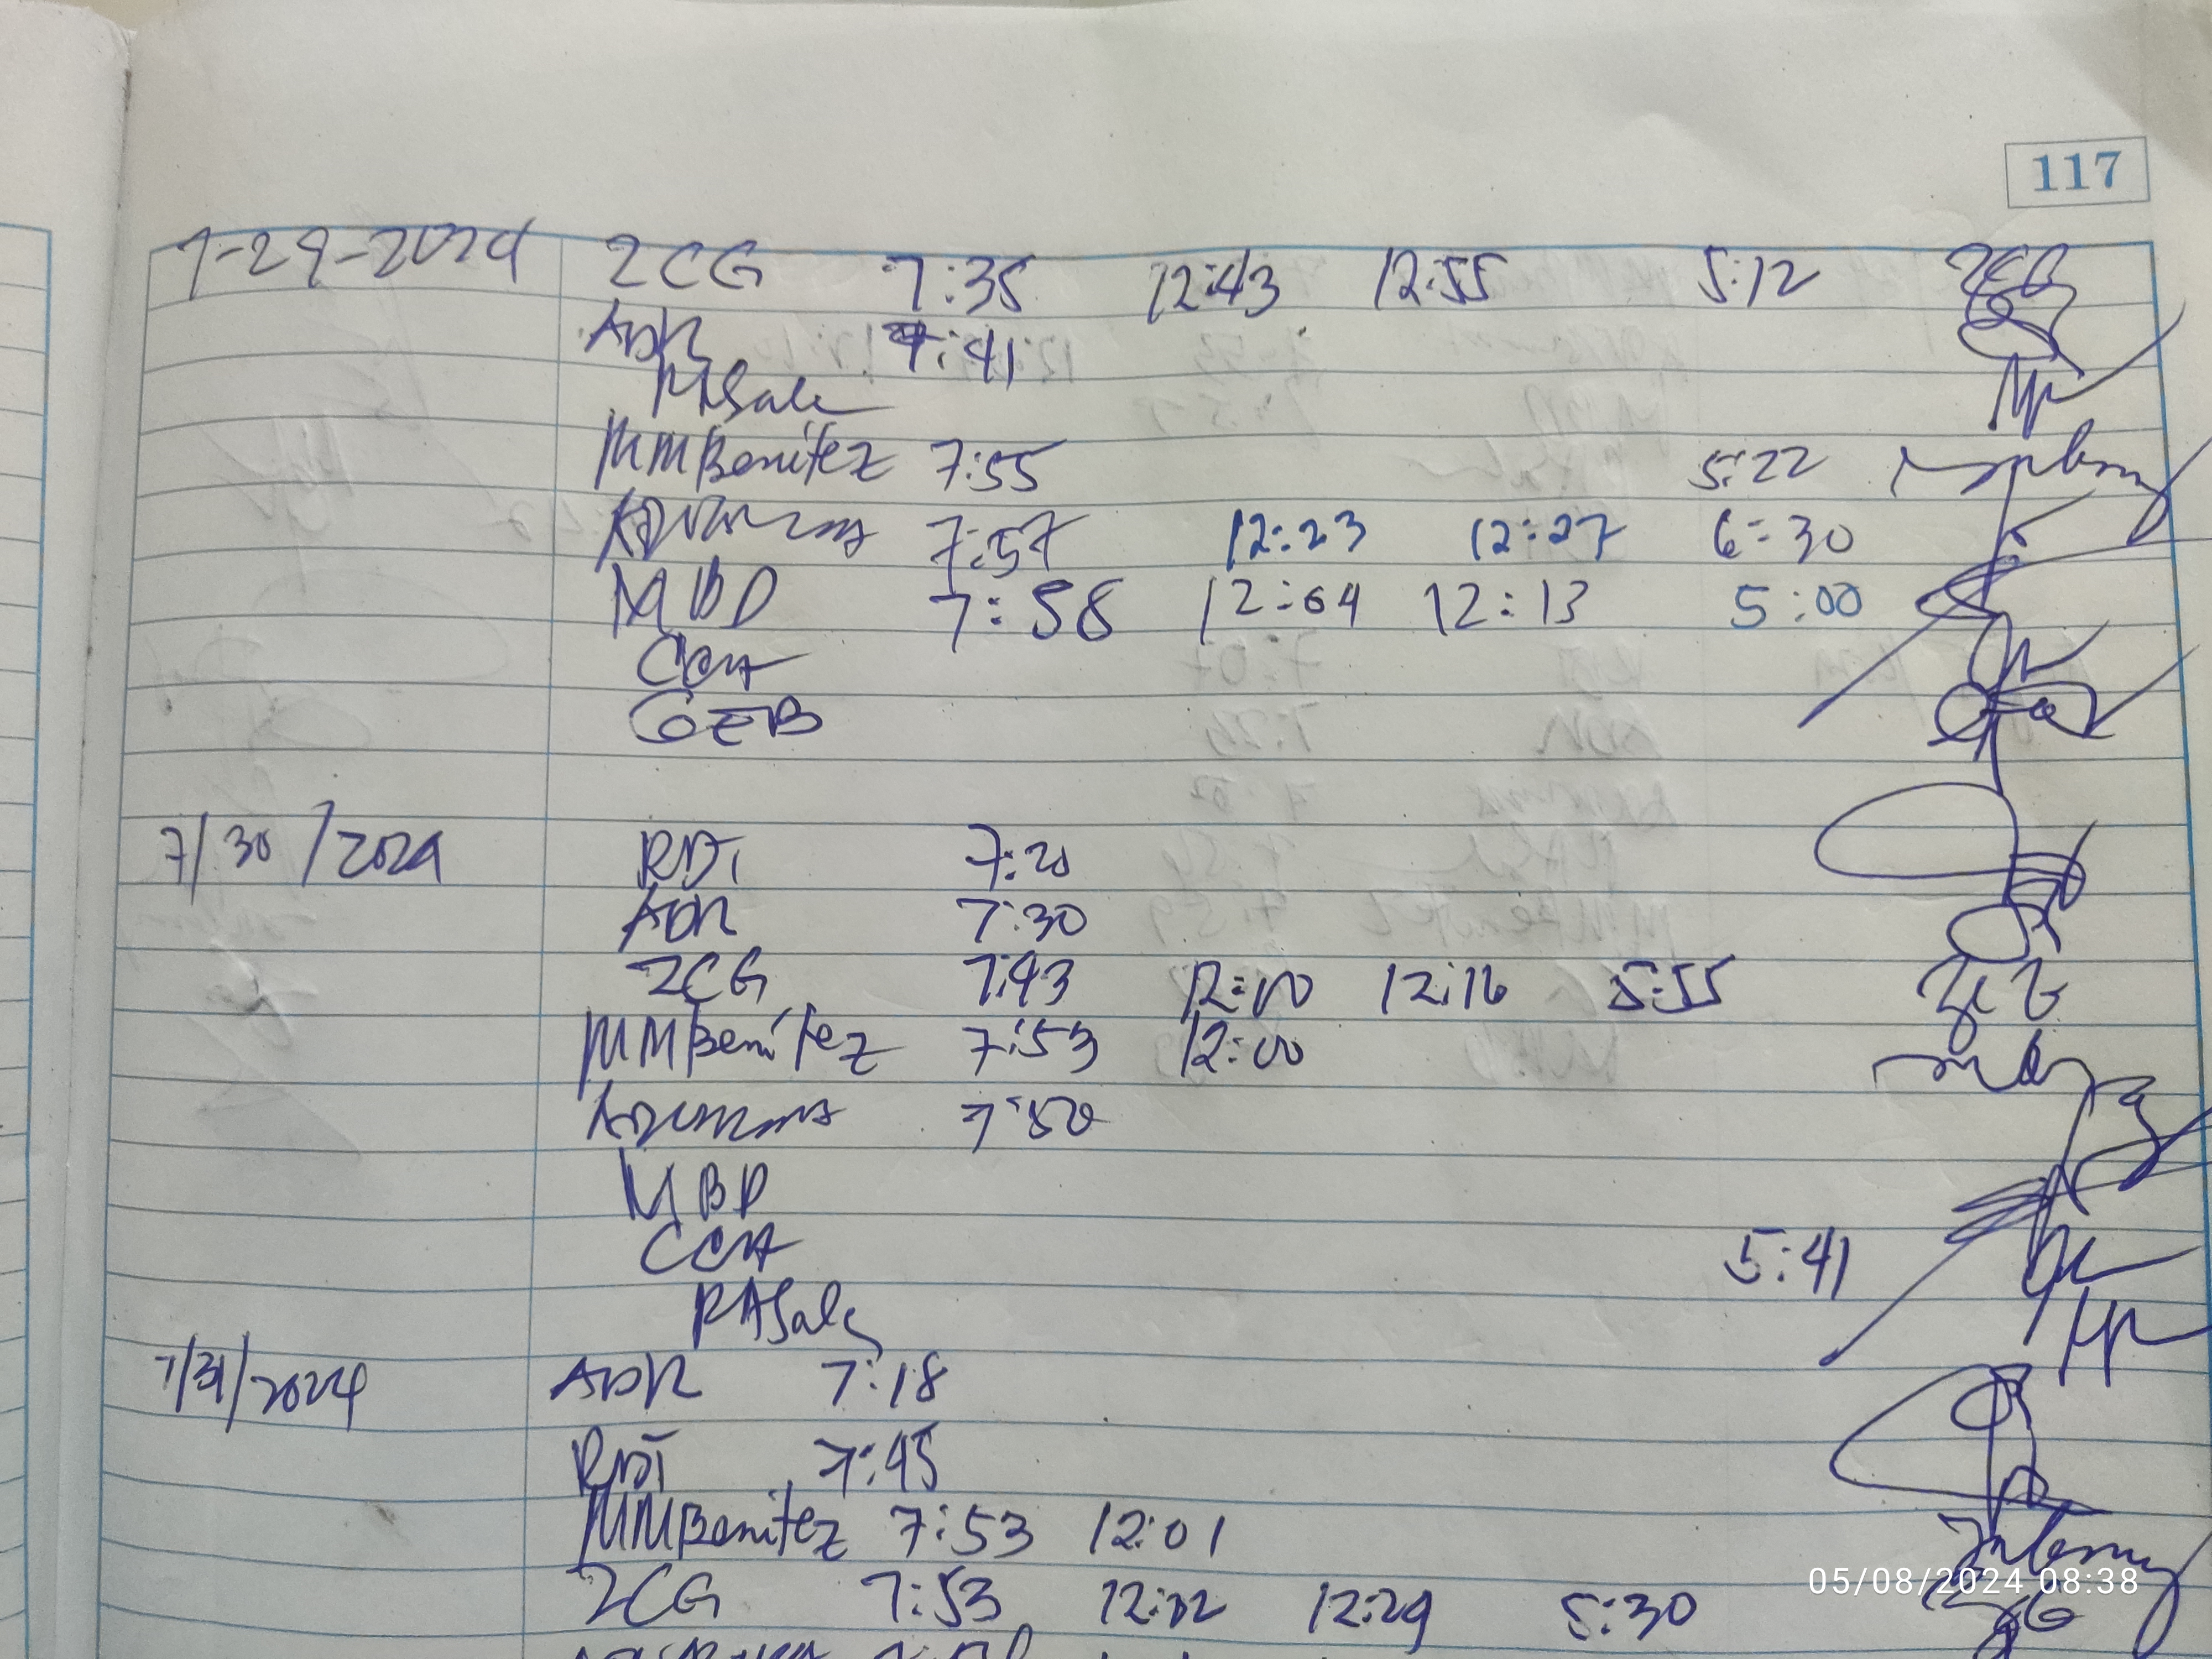 117
7-29-2024 ZCG 7:35 12:43 12:55 5:12 ZCG
ADR 7:41
RASale
MMBenitez 7:55 5:22
7:57 12:23 12:27 6:30
MBD 7:58 12:04 12:13 5:00
CCA
GEB
7/30/2024 RDT 7:20
ADR 7:30
ZCG 7:43 12:10 12:16 5:55
MMBenitez 7:53 12:00
7:50
MBD
CCA 5:41
RASale
7/31/2024 ADR 7:18
RDT 7:45
MMBenitez 7:53 12:01
ZCG 7:53 12:22 12:29 5:30
05/08/2024 08:38